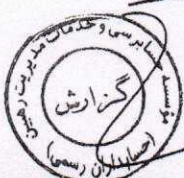 مؤسسه حسابرسی و خدمات مدیریت رهبین
گزارش
(حسابداران رسمی)